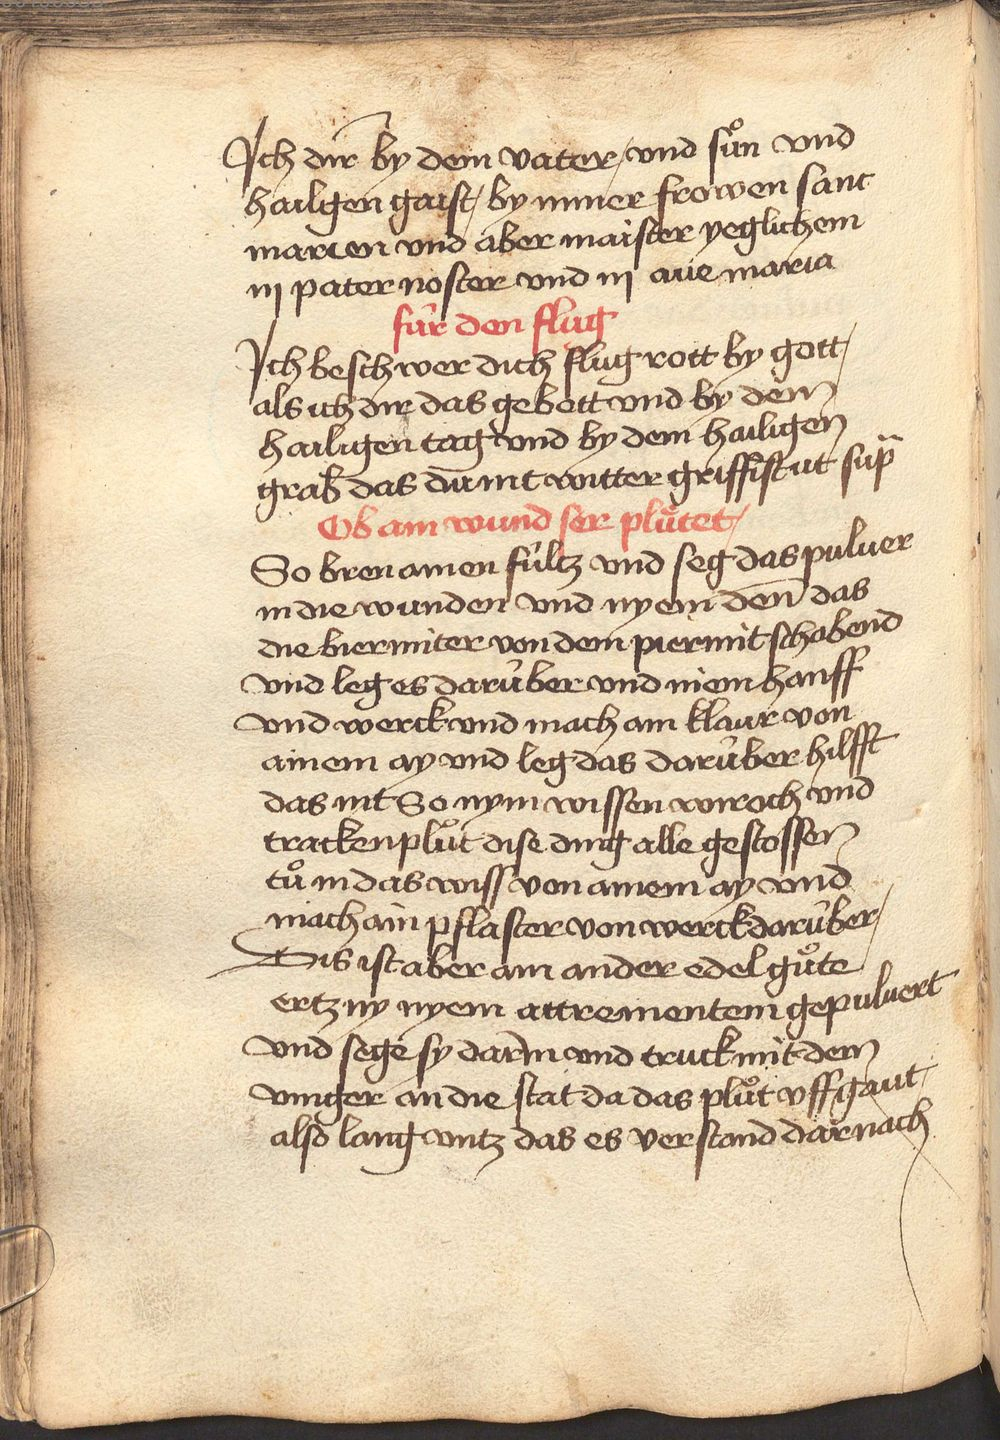 Ich dir by dem vater / vnd sůn vnd
hailigen gaist / by vnnser frowen sant
marien vnd aber maister yeglichem
iij pater noster vnd iij aue maria
für den flug
Ich beschwer dich flug rott by gott /
als ich dir das gebott vnd by dem
hailigen tag vnd by dem hailigen
grab das du nit witter griffist ut sup̄
Ob ain wund ser plůtet /
So bren ainen fültz vnd seg das puluer
in die wunden vnd nyem den̄ das
die biermiter von dem piermit schabend
vnd leg es darüber vnd niem hanff
vnd werck vnd mach ain klaur von
ainem ay vnd leg das darüber hilfft
das nit So nym wissen wiroch vnd
tracken plůt dise ding alle gestossen
tů in das wiss von ainem ay vnd
mach ain pflaster von werck darüber /
Dis ist aber ain ander edel gůte
ertzny nyem attrementem gepuluert
vnd sege sy darin vnd truck mit dem
vinger an die stat da das plůt vssgaut /
also lang vntz das es verstand darnach